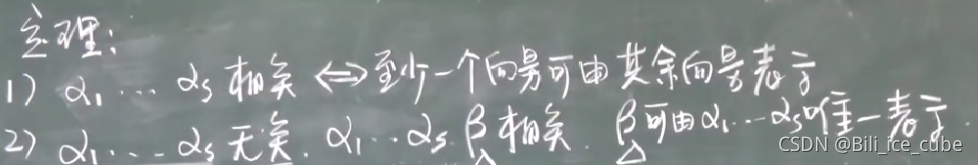 定理:
1) α₁ ⋯ αs 相关 ⟺ 至少一个向量可由其余向量表示
2) α₁ ⋯ αs 无关. α₁ ⋯ αs β 相关. β可由α₁ ⋯ αs唯一表示.
CSDN @Bili_ice_cube